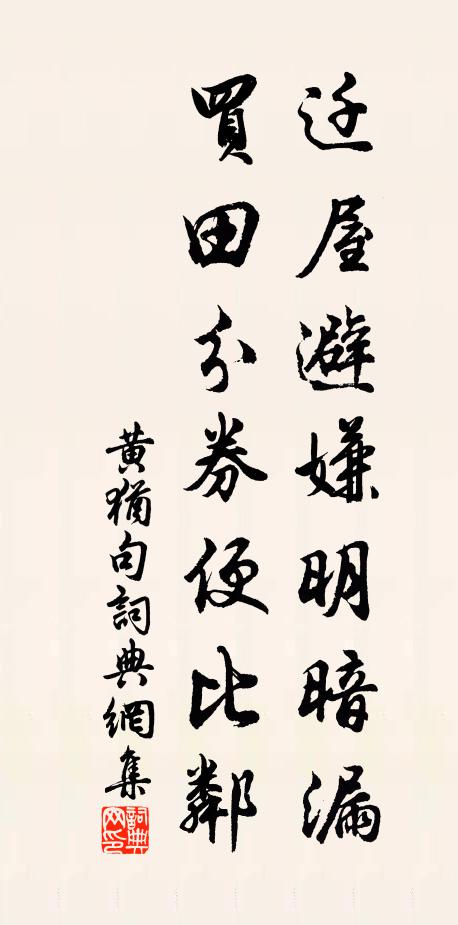 迁屋避嫌明暗漏
買田分券便比鄰
黃猶句詞典網集
詞典网印